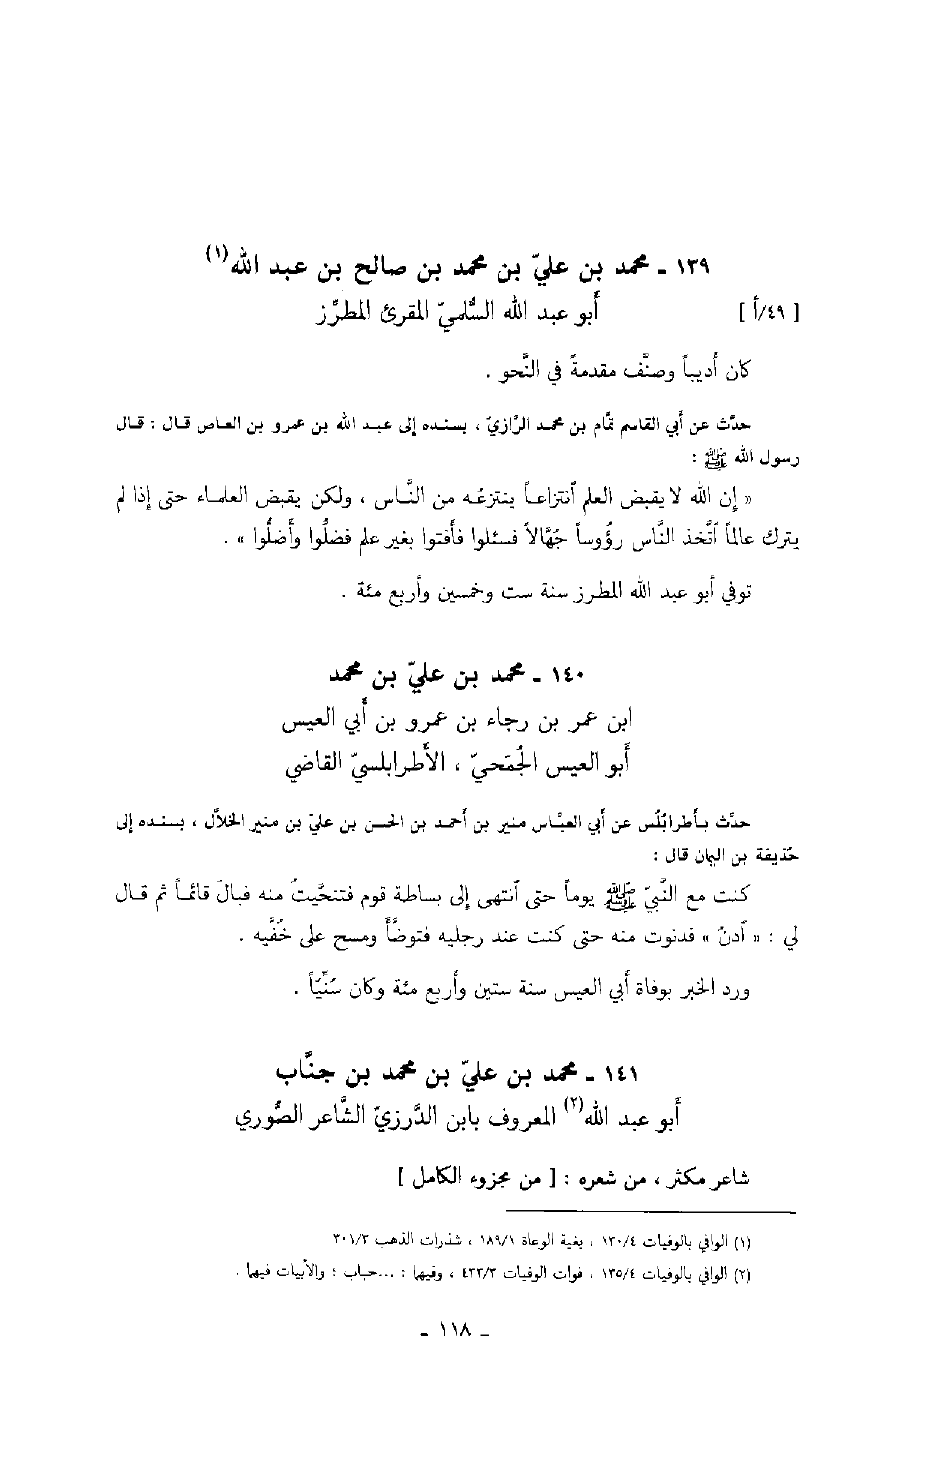 ١٣٩ ـ محمد بن عليّ بن محمد بن صالح بن عبد الله(١)
[ ٤٩/أ ] أبو عبد الله السُّلميّ المقرئ المطرِّز
كان أديباً وصنَّف مقدمةً في النَّحو .
حدَّث عن أبي القاسم تمَّام بن محمد الرَّازيّ ، بسنده إلى عبد الله بن عمرو بن العاص قال : قال
رسول الله ﷺ :
« إن الله لا يقبض العلم اَنتزاعاً ينتزعُه من النَّاس ، ولكن يقبض العلماء حتى إذا لم
يترك عالماً اَتَّخذ النَّاس رؤُوساً جُهَّالاً فسئلوا فأفتوا بغير علم فضلُّوا وأضلُّوا » .
توفي أبو عبد الله المطرز سنة ست وخمسين وأربع مئة .
١٤٠ ـ محمد بن عليّ بن محمد
ابن عمر بن رجاء بن عمرو بن أبي العيس
أبو العيس الجُمَحيّ ، الأطرابلسيّ القاضي
حدَّث بأطرابُلُس عن أبي العبَّاس منير بن أحمد بن الحسن بن عليّ بن منير الخلاَّل ، بسنده إلى
حُذيفة بن اليمان قال :
كنت مع النَّبيّ ﷺ يوماً حتى اَنتهى إلى سباطة قوم فتنحَّيتُ منه فبالَ قائماً ثم قال
لي : « اَدنُ » فدنوت منه حتى كنت عند رجليه فتوضَّأ ومسح على خُفَّيه .
ورد الخبر بوفاة أبي العيس سنة ستين وأربع مئة وكان سُنّيّاً .
١٤١ ـ محمد بن عليّ بن محمد بن جنَّاب
أبو عبد الله(٢) المعروف بابن الدَّرزيّ الشَّاعر الصُّوري
شاعر مكثر ، من شعره : [ من مجزوء الكامل ]
(١) الوافي بالوفيات ١٣٠/٤ ، بغية الوعاة ١٨٩/١ ، شذرات الذهب ٣٠١/٣
(٢) الوافي بالوفيات ١٣٥/٤ ، فوات الوفيات ٤٣٣/٣ ، وفيها : ...حباب ؛ والأبيات فيها .
ـ ١١٨ ـ